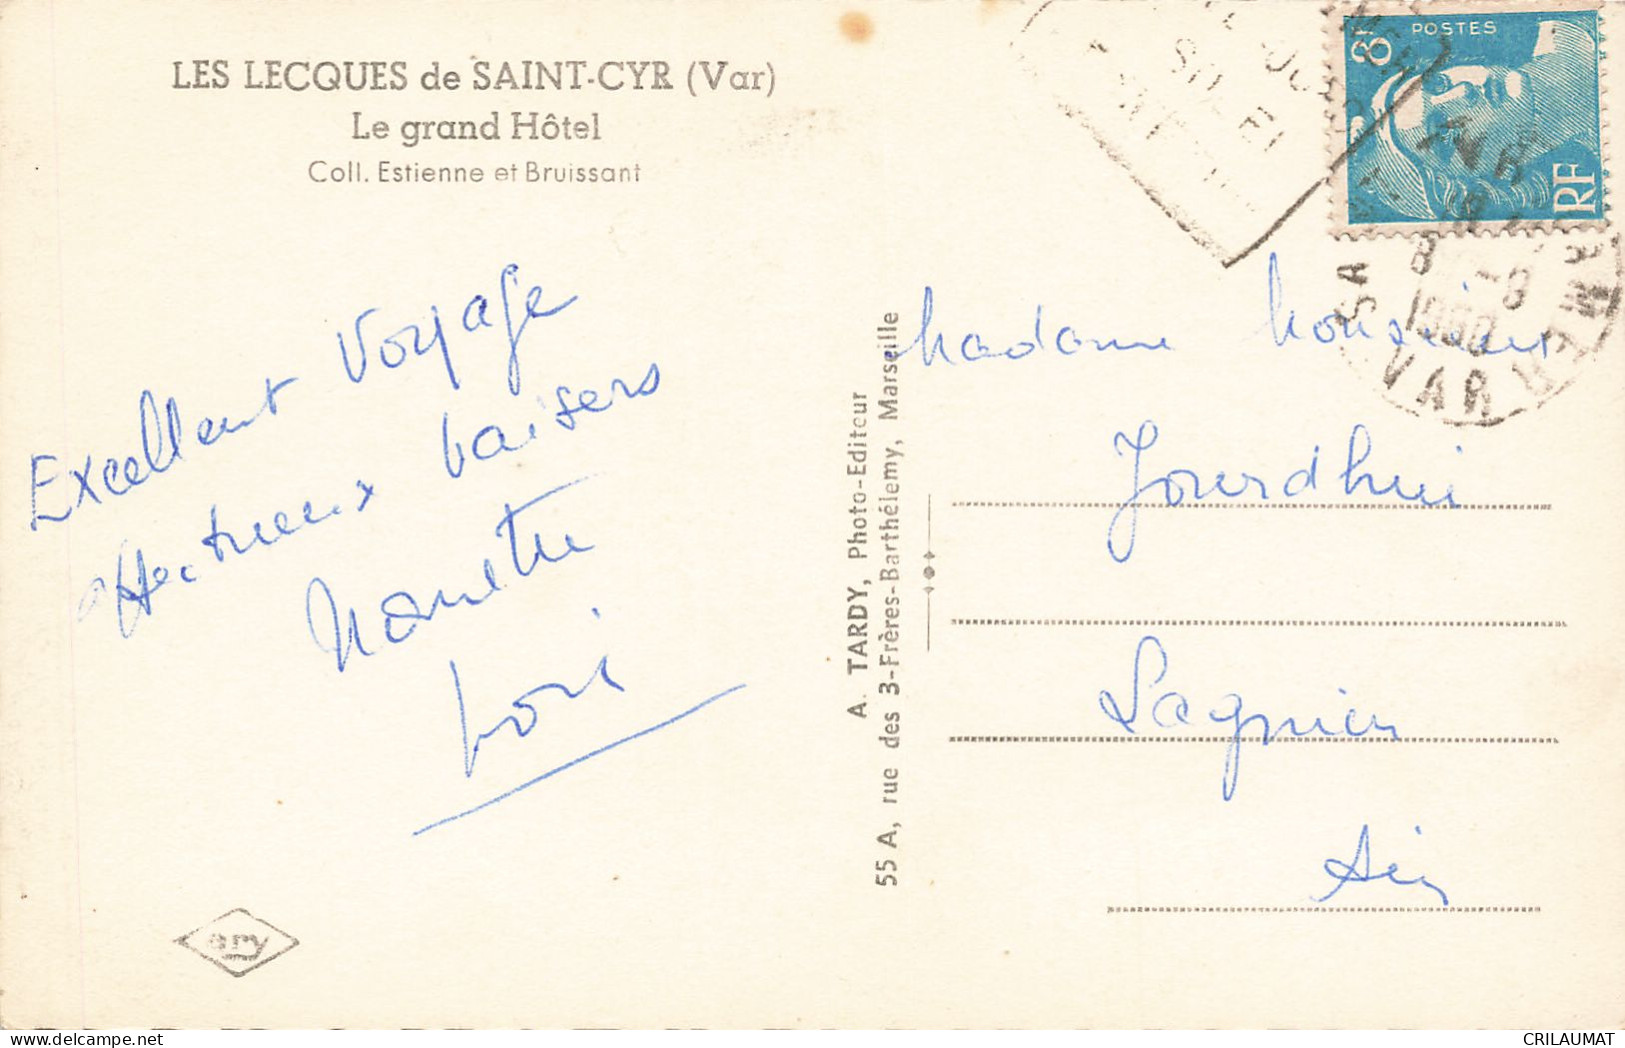 LES LECQUES de SAINT-CYR (Var)
Le grand Hôtel
Coll. Estienne et Bruissant
Excellent voyage
affectueux baisers
ary
A. TARDY, Photo-Editeur
55 A, rue des 3-Frères-Barthélemy, Marseille
POSTES
8F
RF
VAR
Madame Monsieur
Jourdhui
Lagnieu
Ain
CRILAUMAT